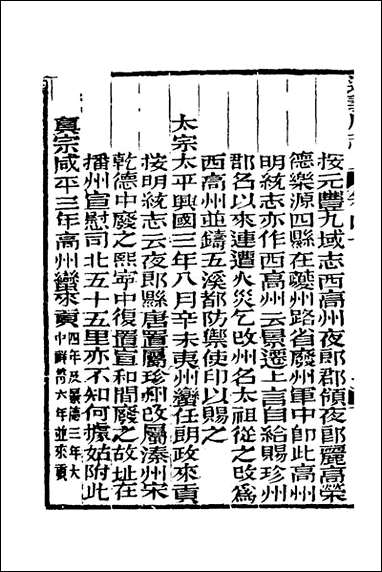 按元豐九域志西高州夜郎郡領夜郎麗高榮
德樂源四縣在夔州路省廢州軍中卽此高州
明統志亦作西高州云景遷上言自給賜珍州
郡名以來連遭火災乞改州名太祖從之改爲
西高州並鑄五溪都防禦使印以賜之
太宗太平興國三年八月辛未夷州蠻任朗政來貢
按明統志云夜郎縣唐置屬珍州改屬溱州宋
乾德中廢之熙寧中復置宣和間廢之故址在
播州宣慰司北五十五里亦不知何據姑附此
眞宗咸平三年高州蠻來貢
四年及景德三年大
中祥符六年並來貢